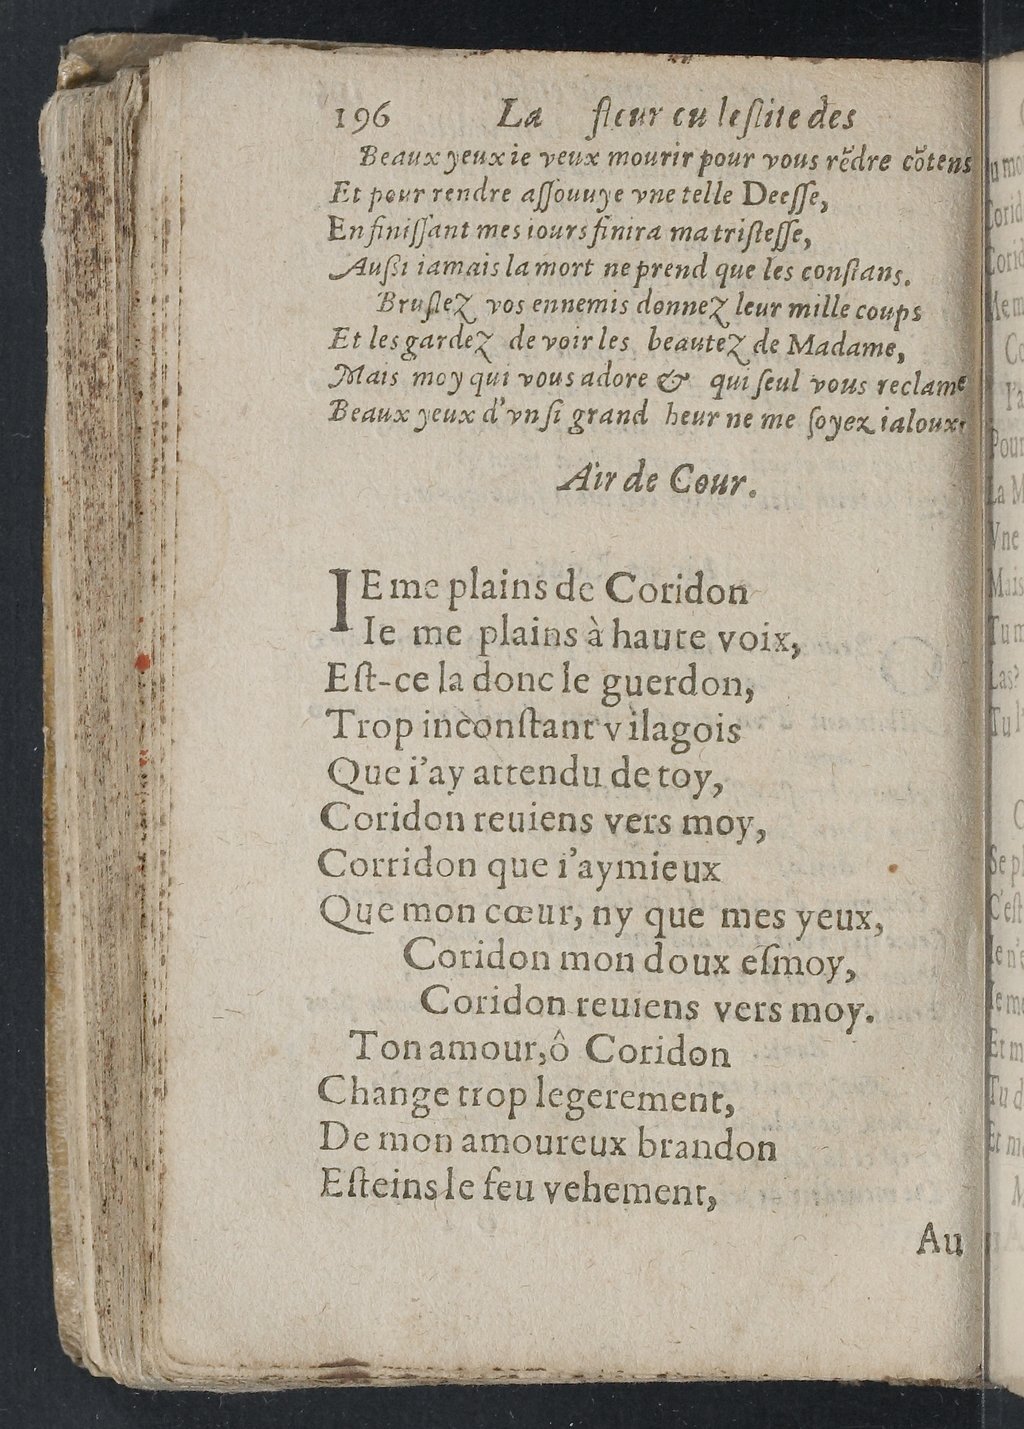 196 La fleur cu leſlite des
Beaux yeux ie veux mourir pour vous rẽdre cõtens
Et pour rendre aſſouuye vne telle Deeſſe,
En finiſſant mes iours finira ma triſteſſe,
Auſsi iamais la mort ne prend que les conſtans.
Bruſlez vos ennemis donnez leur mille coups
Et les gardez de voir les beautez de Madame,
Mais moy qui vous adore & qui ſeul vous reclame
Beaux yeux d'vn ſi grand heur ne me ſoyez ialoux.
Air de Cour.
IE me plains de Coridon
Ie me plains à haute voix,
Eſt-ce la donc le guerdon,
Trop inconſtant vilagois
Que i'ay attendu de toy,
Coridon reuiens vers moy,
Corridon que i'aymieux
Que mon cœur, ny que mes yeux,
Coridon mon doux eſmoy,
Coridon reuiens vers moy.
Ton amour, ô Coridon
Change trop legerement,
De mon amoureux brandon
Eſteins le feu vehement,
Au